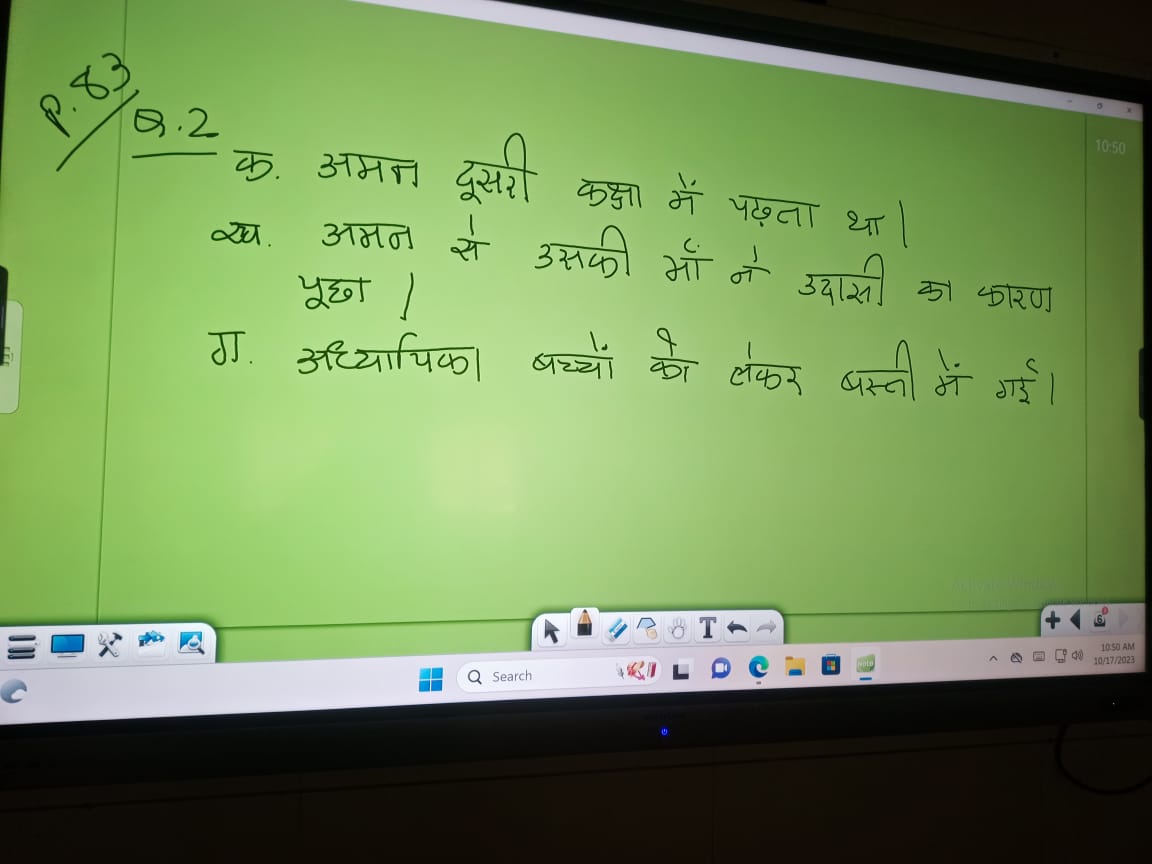 P. 83
Q.2
क. अमन दूसरी कक्षा में पढ़ता था।
ख. अमन से उसकी माँ ने उदासी का कारण
पूछा।
ग. अध्यापिका बच्चों को लेकर बस्ती में गई।
10:50
T
Search
10:50 AM
10/17/2023